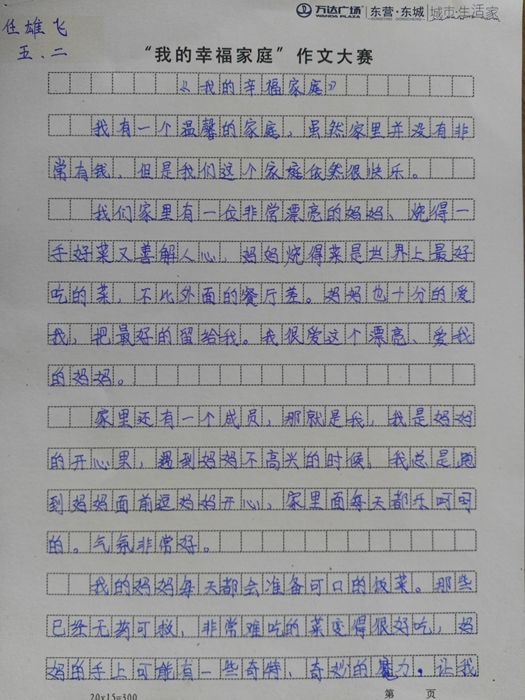 万达广场 WANDA PLAZA 东营·东城 城市·生活家
任雄飞
五、二
“我的幸福家庭”作文大赛
《我的幸福家庭》
我有一个温馨的家庭，虽然家里并没有非
常有钱，但是我们这个家庭依然很快乐。
我们家里有一位非常漂亮的妈妈、烧得一
手好菜又善解人心，妈妈烧得菜是世界上最好
吃的菜，不比外面的餐厅差。妈妈也十分的爱
我，把最好的留给我。我很爱这个漂亮、爱我
的妈妈。
家里还有一个成员，那就是我，我是妈妈
的开心果，遇到妈妈不高兴的时候，我总是跑
到妈妈面前逗妈妈开心，家里面每天都乐呵呵
的。气氛非常好。
我的妈妈每天都会准备可口的饭菜。那些
已经无药可救，非常难吃的菜变得很好吃，妈
妈的手上可能有一些奇特、奇妙的魔力。让我
20x15=300 第 页